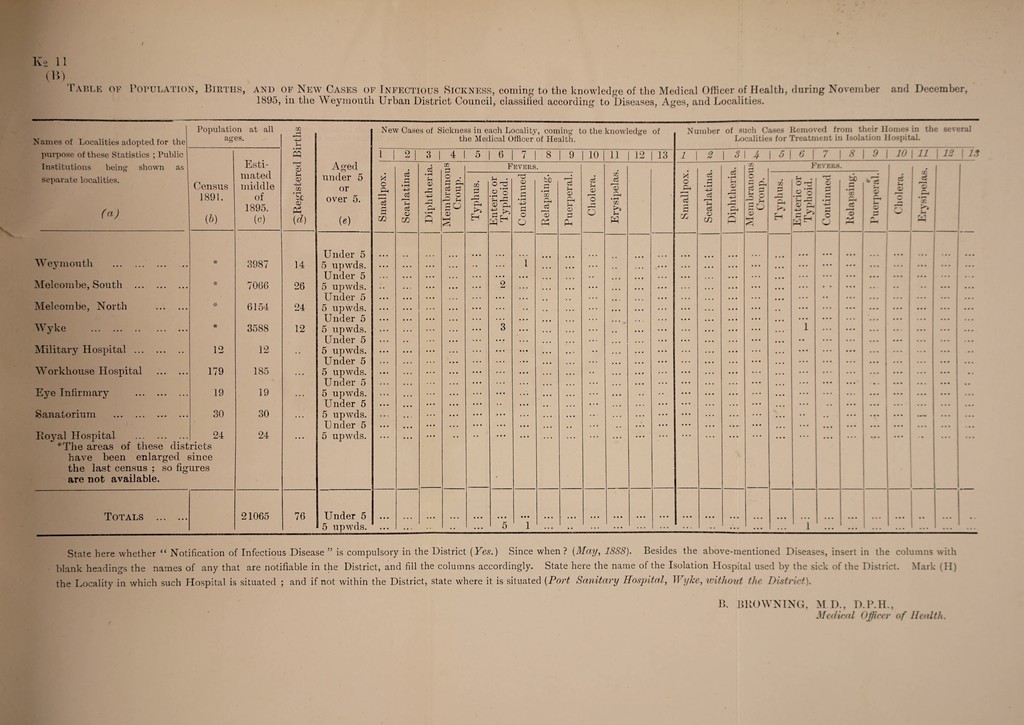 K2 11
(B)
TABLE OF POPULATION, BIRTHS, AND OF NEW CASES OF INFECTIOUS SICKNESS, coming to the knowledge of the Medical Officer of Health, during November and December,
1895, in the Weymouth Urban District Council, classified according to Diseases, Ages, and Localities.
Names of Localities adopted for the
purpose of these Statistics ; Public
Institutions being shown as
separate localities.
(a)
Population at all
ages.
Census
1891.
(b)
Esti-
mated
middle
of
1895.
(c)
Registered Births
(d)
Aged
under 5
or
over 5.
(e)
New Cases of Sickness in each Locality, coming to the knowledge of
the Medical Officer of Health.
1 2 3 4 5 6 7 8 9 10 11 12 13
Smallpox.
Scarlatina.
Diphtheria.
Membranous
Croup.
FEVERS.
Typhus.
Enteric or
Typhoid.
Continued
Relapsing.
Puerperal.
Cholera.
Erysipelas.
Number of such Cases Removed from their Homes in the several
Localities for Treatment in Isolation Hospital.
1 2 3 4 5 6 7 8 9 10 11 12 13
Smallpox.
Scarlatina.
Diphtheria.
Membranous
Croup.
FEVERS.
Typhus.
Enteric or
Typhoid.
Continued
Relapsing.
Puerperal.
Cholera.
Erysipelas.
Under 5
Weymouth ... ... ... .. * 3987 14 5 upwds. 1
Under 5
Melcombe, South ... ... ... * 7066 26 5 upwds. 2
Under 5
Melcombe, North ... ... * 6154 24 5 upwds.
Under 5
Wyke ... ... .. ... ... * 3588 12 5 upwds. 3 1
Under 5
Military Hospital ... ... .. 12 12 .. 5 upwds.
Under 5
Workhouse Hospital ... ... 179 185 ... 5 upwds.
Under 5
Eye Infirmary ... ... ... 19 19 ... 5 upwds.
Under 5
Sanatorium ... ... ... ... 30 30 ... 5 upwds.
Under 5
Royal Hospital ... ... ... 24 24 ... 5 upwds.
*The areas of these districts
have been enlarged since
the last census ; so figures
are not available.
TOTALS ... ... 21065 76 Under 5
5 upwds. 5 1 1
State here whether “ Notification of Infectious Disease ” is compulsory in the District (Yes.) Since when ? (May, 1888). Besides the above-mentioned Diseases, insert in the columns with
blank headings the names of any that are notifiable in the District, and fill the columns accordingly. State here the name of the Isolation Hospital used by the sick of the District. Mark (H)
the Locality in which such Hospital is situated ; and if not within the District, state where it is situated (Port Sanitary Hospital, Wyke, without the District).
B. BROWNING, M.D., D.P.H.,
Medical Officer of Health.